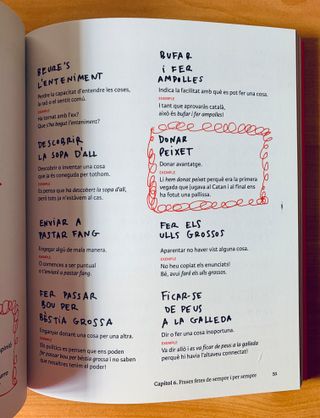 BEURE'S
L'ENTENIMENT
Perdre la capacitat d'entendre les coses,
la raó o el sentit comú.
EXEMPLE
Ha tornat amb l'ex?
Que s'ha begut l'enteniment?
DESCOBRIR
LA SOPA D'ALL
Descobrir o inventar una cosa
que ja és coneguda per tothom.
EXEMPLE
Es pensa que ha descobert la sopa d'all,
però tots ja n'estàvem al cas.
ENVIAR A
PASTAR FANG
Engegar algú de mala manera.
EXEMPLE
O comences a ser puntual
o t'enviaré a pastar fang.
FER PASSAR
BOU PER
BÈSTIA GROSSA
Enganyar donant una cosa per una altra.
EXEMPLE
Els polítics es pensen que ens poden
fer passar bou per bèstia grossa i no saben
que nosaltres tenim el poder!
BUFAR
I FER
AMPOLLES
Indica la facilitat amb què es pot fer una cosa.
EXEMPLE
I tant que aprovaràs català,
això és bufar i fer ampolles!
DONAR
PEIXET
Donar avantatge.
EXEMPLE
Li hem donat peixet perquè era la primera
vegada que jugava al Catan i al final ens
ha fotut una pallissa.
FER ELS
ULLS GROSSOS
Aparentar no haver vist alguna cosa.
EXEMPLE
No heu copiat els enunciats!
Bé, avui faré els ulls grossos.
FICAR-SE
DE PEUS
A LA GALLEDA
Dir o fer una cosa inoportuna.
EXEMPLE
Va dir allò i es va ficar de peus a la galleda
perquè hi havia l'altaveu connectat!
Capítol 6. Frases fetes de sempre i per sempre
53